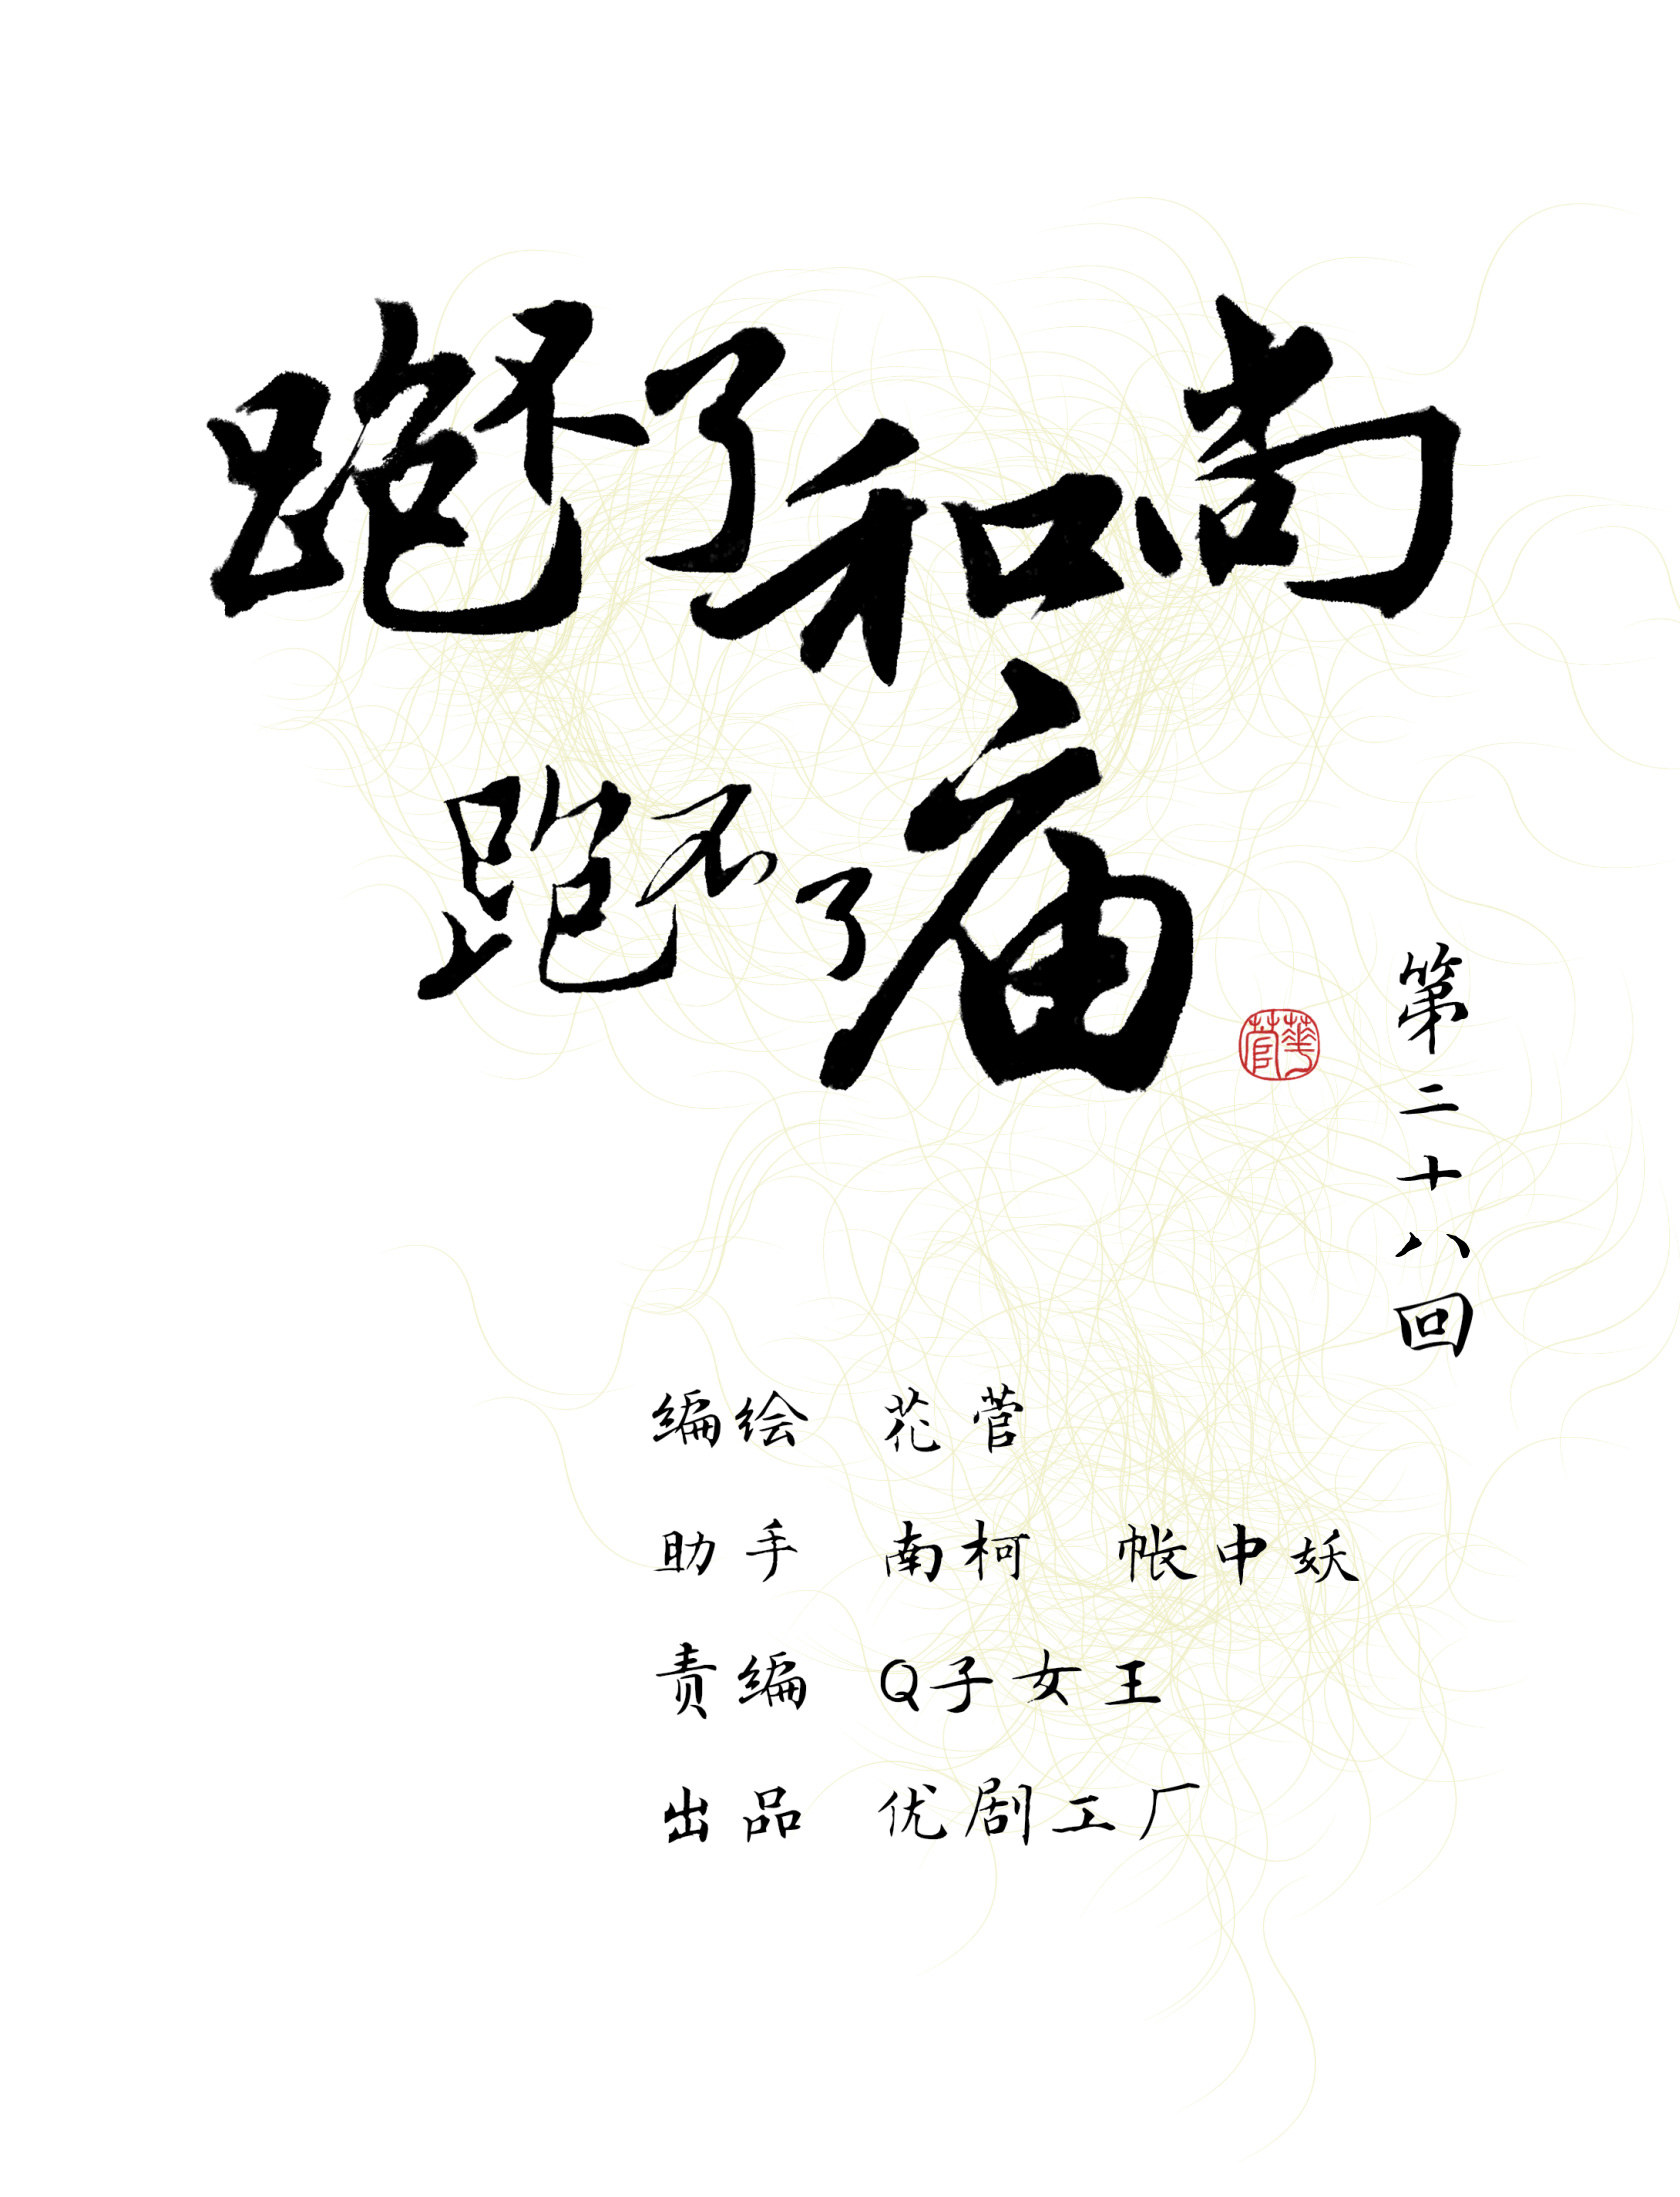 跑不了和尚
跑不了庙
華菅
第二十八回
编绘 花菅
助手 南柯 帐中妖
责编 Q子女王
出品 优剧工厂